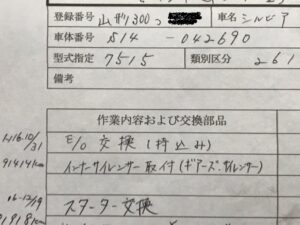 登録番号 山形300つ 車名 シルビア
車体番号 S14-042690
型式指定 7515 類別区分 261
備考
作業内容および交換部品
H16.10/31 E/O 交換(持込み)
91414km インナーサイレンサー取付(ギアーズ.サイレンサー)
16-12/19 スターター交換
91918km